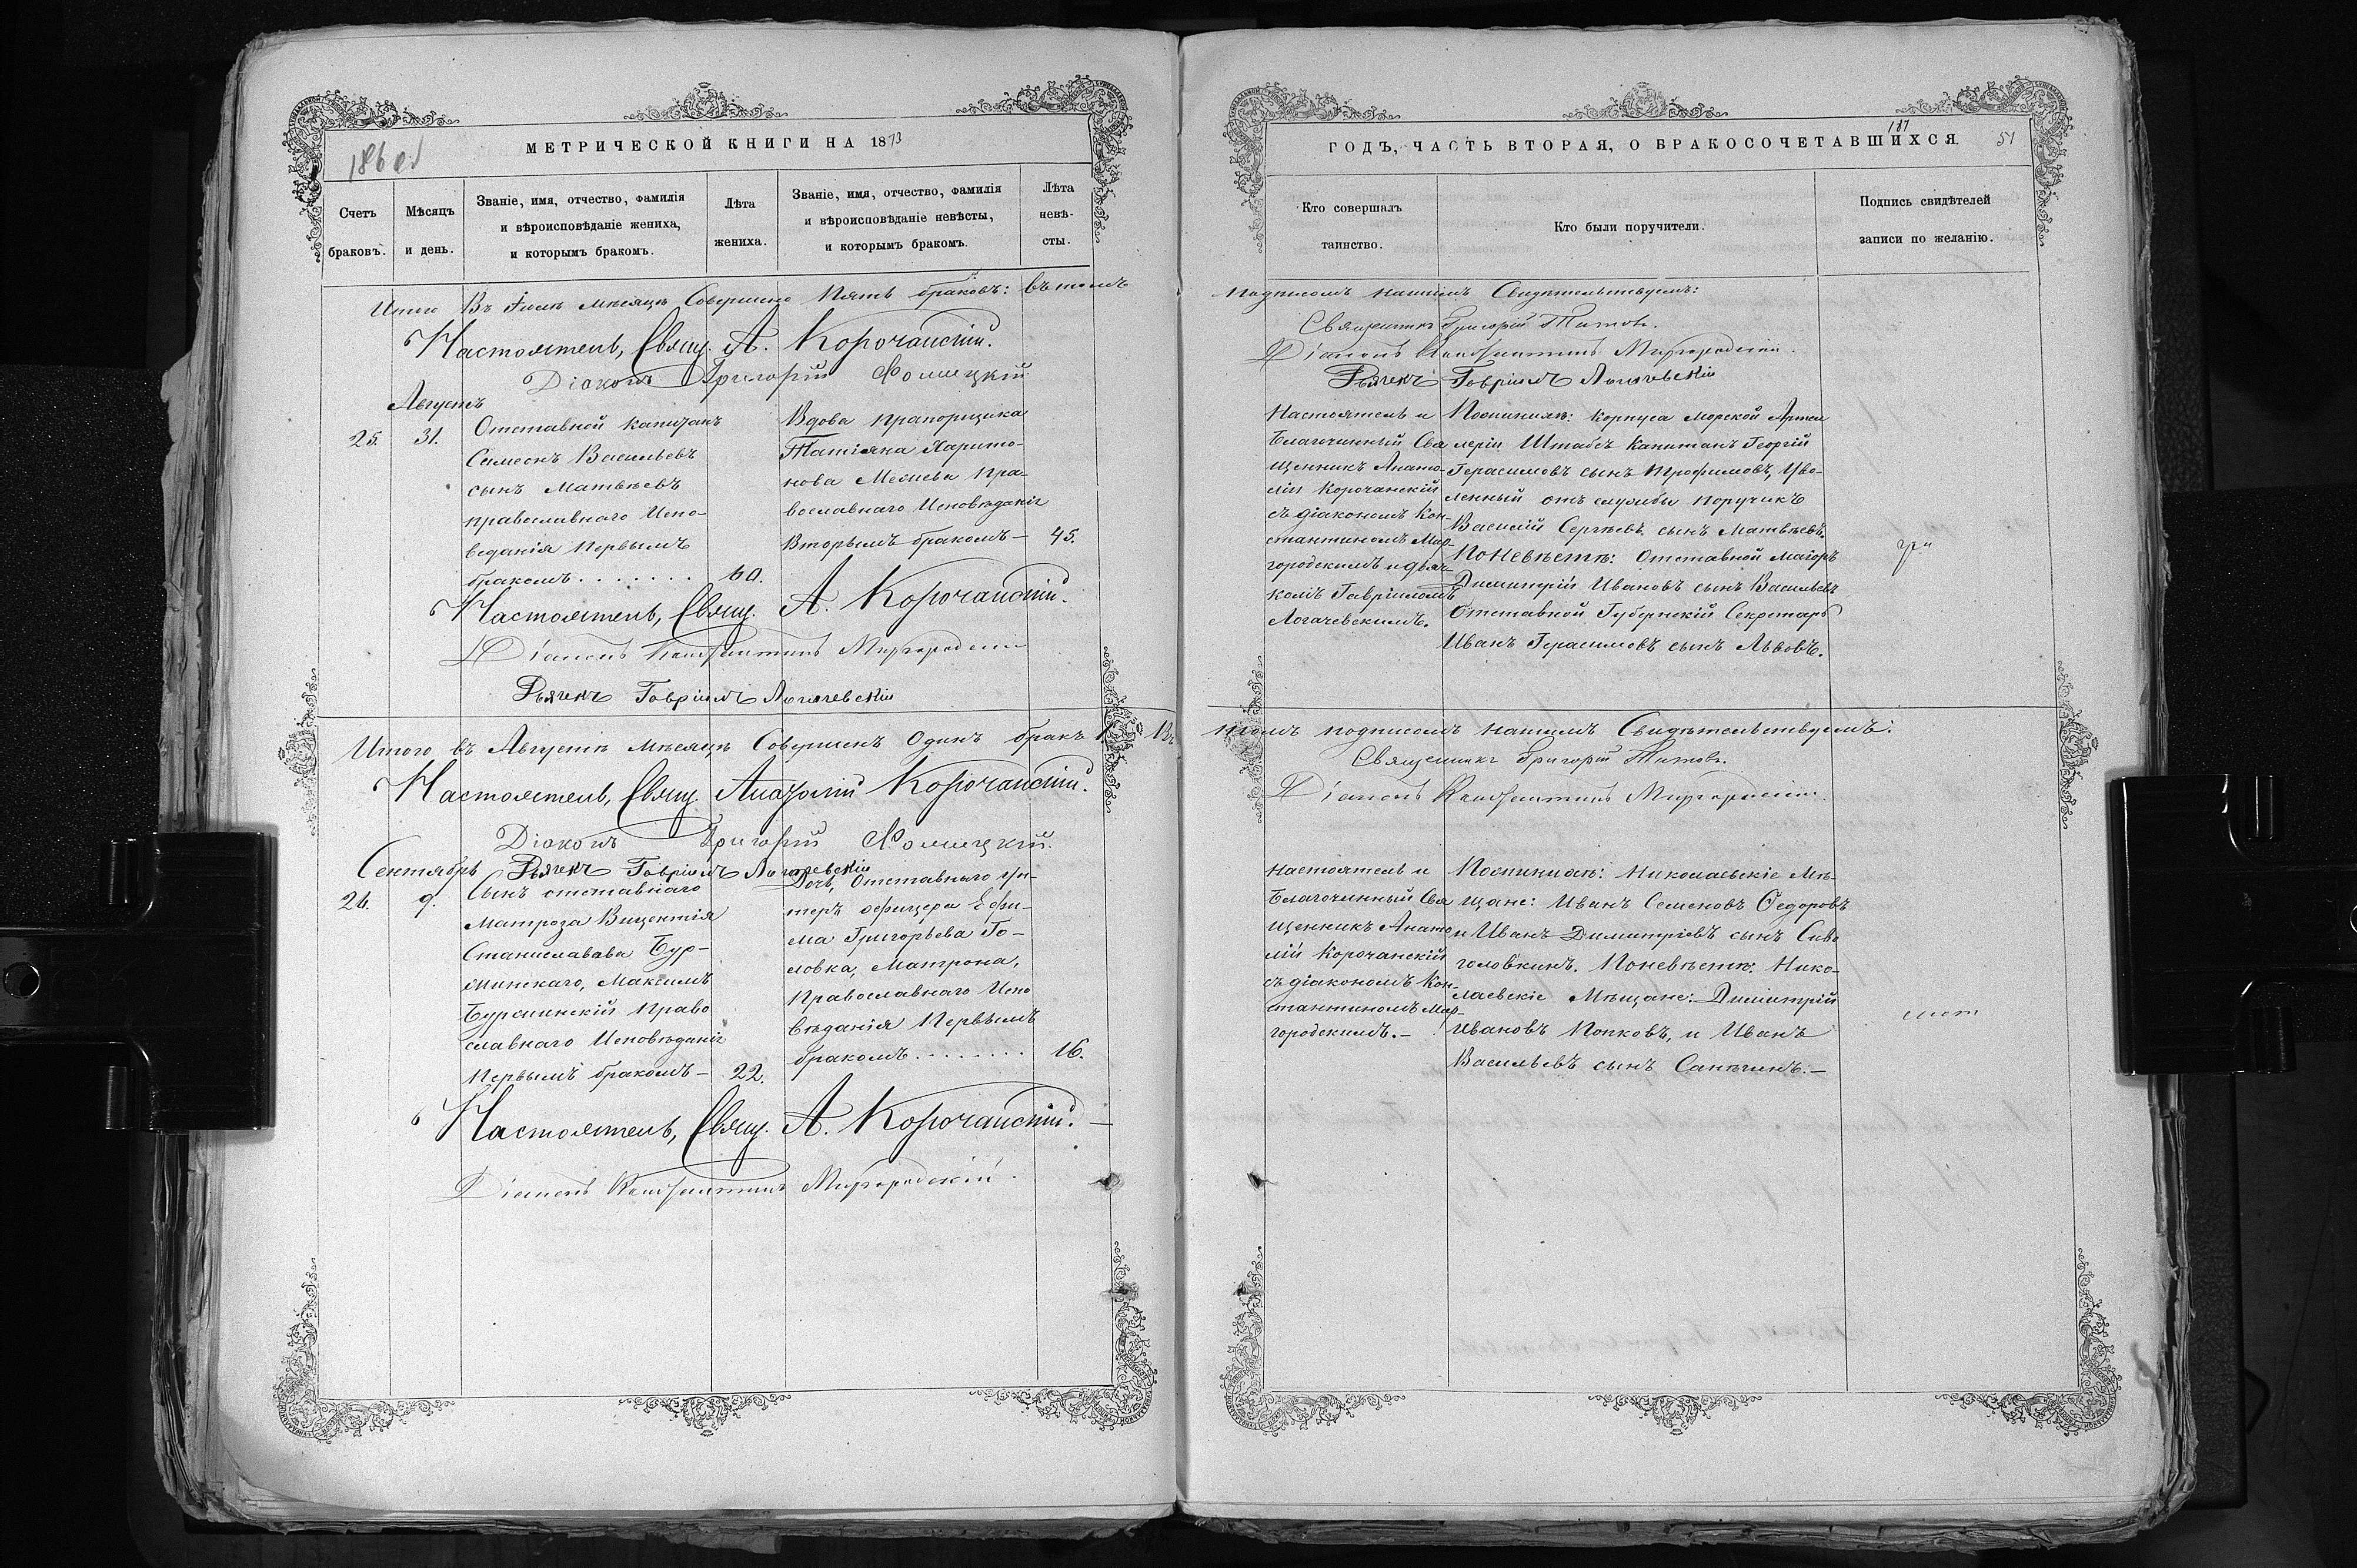 186 об
МЕТРИЧЕСКОЙ КНИГИ НА 1873
Счетъ браковъ.
Мѣсяцъ и день.
Званіе, имя, отчество, фамилія
и вѣроисповѣданіе жениха,
и которымъ бракомъ.
Лѣта жениха.
Званіе, имя, отчество, фамилія
и вѣроисповѣданіе невѣсты,
и которымъ бракомъ.
Лѣта невѣ-
сты.
Итого Въ Іюлѣ мѣсяцѣ Совершено Пять браковъ: въ томъ
Настоятель, Свящ. А. Корочанскій.
Діаконъ Григорій Фомицкій
Августъ
25. 31.
Отставной капитанъ
Симеонъ Васильевъ
сынъ Матвѣевъ
православнаго Испо-
веданія Первымъ
бракомъ. . . . . . . 60.
Вдова прапорщика
Татіяна Харито-
нова пра-
вославнаго Исповѣданія
Вторымъ бракомъ — 45.
Настоятель, Свящ. А. Корочанскій.
Діаконъ Константинъ Миргородскій
Дьячекъ Гавріилъ Логачевскій
Итого въ Августѣ мѣсяцѣ Совершенъ Одинъ бракъ 1. Въ
Настоятель, Свящ. Анатолій Корочанскій.
Діаконъ Григорій Фомицкій.
Сентябрь Дьячекъ Гавріилъ Логачевскій
26. 9.
Сынъ отставнаго
Матроза Вицентія
Станиславава Бур-
минскаго, Максимъ
Бурминскій Право
славнаго Исповѣданія
Первымъ бракомъ — 22.
Дочь, Отставнаго Ун-
теръ офицера Ефи-
ма Григорьева Го-
ловка, Матрона,
Православнаго Испо
вѣданія Первымъ
бракомъ. . . . . . . . 16.
Настоятель, Свящ. А. Корочанскій. —
Діаконъ Константинъ Миргородскій.
187
ГОДЪ, ЧАСТЬ ВТОРАЯ, О БРАКОСОЧЕТАВШИХСЯ.
51
Кто совершалъ
таинство.
Кто были поручители.
Подпись свидѣтелей
записи по желанію.
подписомъ нашимъ Свидѣтельствуемъ:
Священникъ Григорій Титовъ.
Діаконъ Константинъ Миргородскій.
Дьячекъ Гавріилъ Логачевскій
Настоятель и
Благочинный Свя
щенникъ Анато-
лій Корочанскій
съ діакономъ Кон-
стантиномъ Мир-
городскимъ и дьяч-
комъ Гавріиломъ
Логачевскимъ.
Поженихѣ: Корпуса Морской Артил
леріи Штабсъ Капитанъ Георгій
Герасимовъ сынъ Трофимовъ, Уво-
ленный отъ службы поручикъ
Василій Сергѣевъ сынъ Матвѣевъ.
Поневѣстѣ: Отставной Маіоръ
Димитрій Ивановъ сынъ Васильевъ
Отставной Губернскій Секретарь
Иванъ Герасимовъ сынъ Львовъ.
томъ подписомъ нашимъ Свидѣтельствуемъ:
Священникъ Григорій Титовъ.
Діаконъ Константинъ Миргородскій.
Настоятель и
Благочинный Свя
щенникъ Анато
лій Корочанскій
съ діакономъ Кон-
стантиномъ Мир-
городскимъ. —
Поженихѣ: Николаевскіе Мѣ-
щане: Иванъ Семеновъ Ѳедоровъ
и Иванъ Димитріевъ сынъ Сиво
головкинъ. Поневѣстѣ: Нико-
лаевскіе Мѣщане: Димитрій
Ивановъ Попковъ, и Иванъ
Васильевъ сынъ Санѣчинъ. —